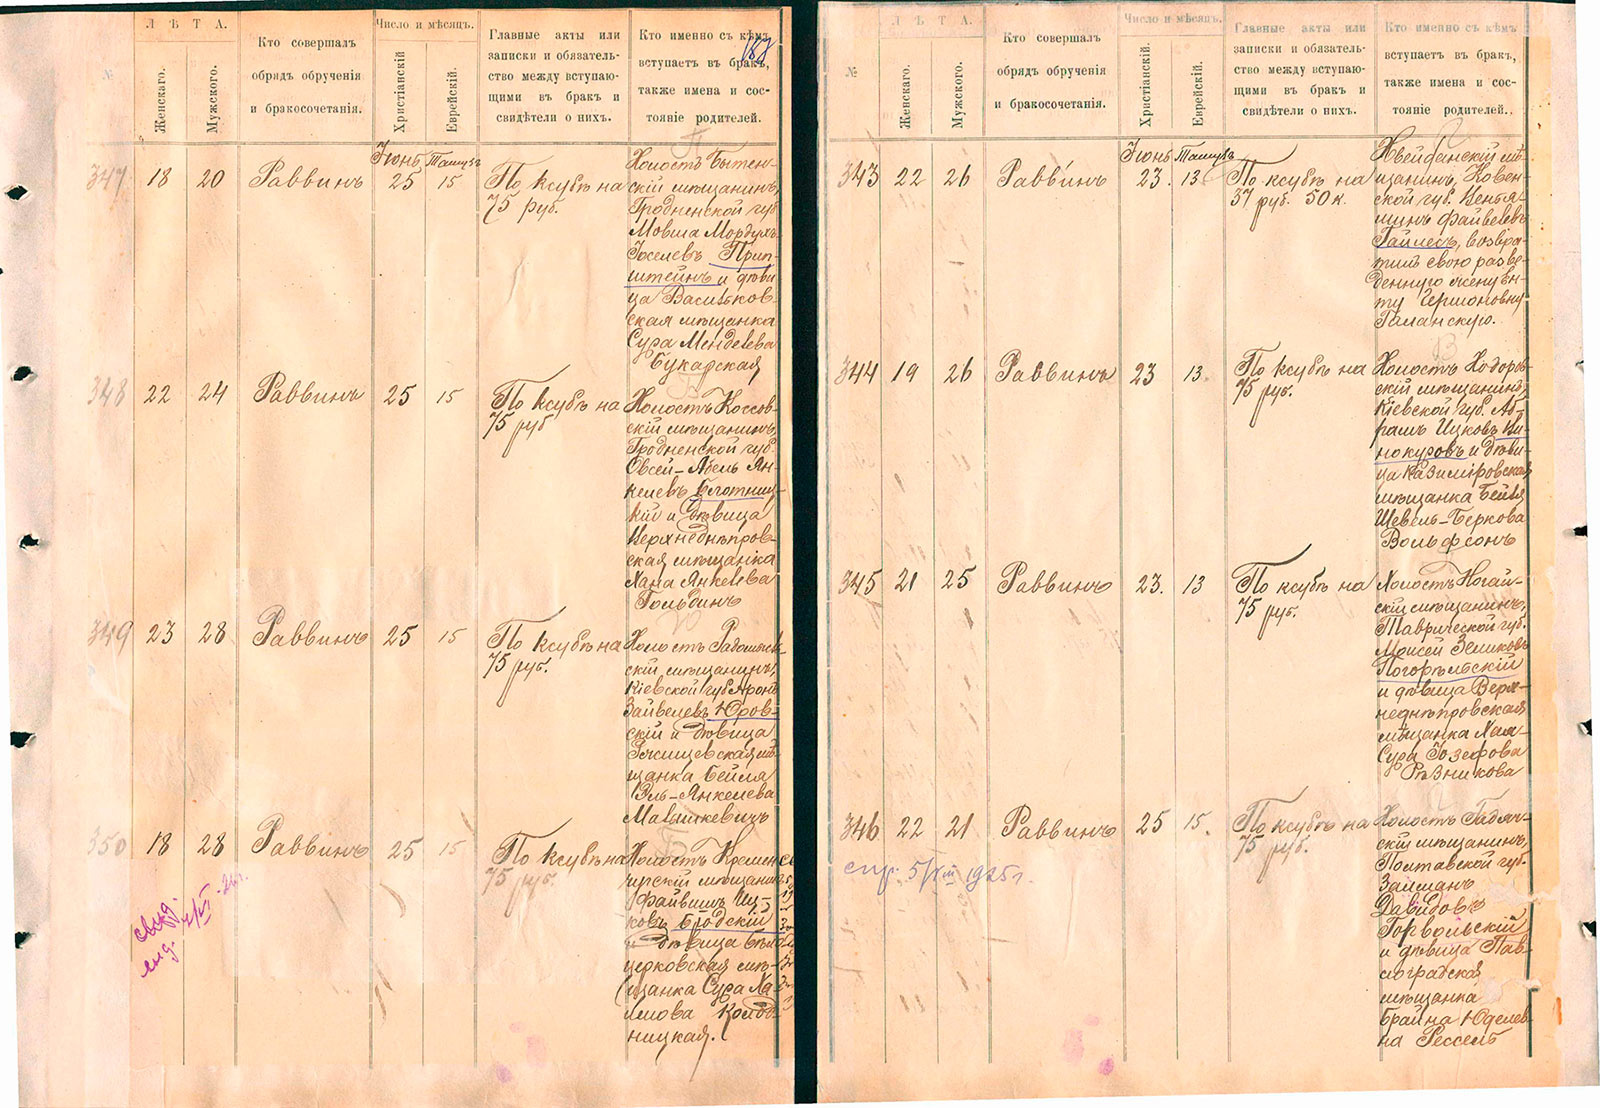 Л Ѣ Т А.
Число и мѣсяцъ.
№
Женскаго.
Мужского.
Кто совершалъ
обрядъ обрученія
и бракосочетанія.
Христіанскій
Еврейскій.
Главные акты или
записки и обязатель-
ство между вступаю-
щими въ бракъ и
свидѣтели о нихъ.
Кто именно съ кѣмъ
вступаетъ въ бракъ,
также имена и сос-
тояніе родителей.
347 18 20 Раввинъ
Іюнь
25
Тамузъ
15
По ксубѣ на
75 руб.
Холостъ Бытен-
скій мѣщанинъ,
Гродненской губ.
Мовша Мордухъ
Іоселевъ
и дѣви-
ца Васильков-
ская мѣщанка
Сура Менделева
Букарская
348 22 24 Раввинъ 25 15
По ксубѣ на
75 руб
Холостъ Коссов-
скій мѣщанинъ,
Гродненской губ.
Овсей-Абель Ян-
келевъ Блотниц-
кій и дѣвица
Верхнеднѣпров-
ская мѣщанка
Хана Янкелева
Гольдинъ
349 23 28 Раввинъ 25 15
По ксубѣ на
75 руб.
Холостъ Радомысль-
скій мѣщанинъ,
Кіевской губ. Аронъ
Зайвелевъ Юров-
скій и дѣвица
мѣ-
щанка Бейля
Эль-Янкелева
Мавшкевичъ
350 18 28 Раввинъ 25 15
По ксубѣ на
75 руб.
Холостъ Кремен-
чугскій мѣщанинъ
Файвишъ Иц-
ковъ Бродскій
и дѣвица Бѣло-
церковская мѣ-
щанка Сура Ха-
имова Колод-
ницкая.
Л Ѣ Т А.
Число и мѣсяцъ.
№
Женскаго.
Мужского.
Кто совершалъ
обрядъ обрученія
и бракосочетанія.
Христіанскій
Еврейскій.
Главные акты или
записки и обязатель-
ство между вступаю-
щими въ бракъ и
свидѣтели о нихъ.
Кто именно съ кѣмъ
вступаетъ въ бракъ,
также имена и сос-
тояніе родителей.
343 22 26 Раввинъ
Іюнь
23.
Тамузъ
13
По ксубѣ на
37 руб. 50 к.
Квейданскій мѣ-
щанинъ, Ковен-
ской губ. Бенья-
минъ Файвелевъ
Гайлесъ, возвра-
тилъ свою разве-
денную жену Ен-
ту Гершоновну
Галанскую.
344 19 26 Раввинъ 23 13.
По ксубѣ на
75 руб.
Холостъ Ходоров-
скій мѣщанинъ,
Кіевской губ. Аб-
рамъ Ицковъ Ви-
нокуровъ и дѣви-
ца Казиміровская
мѣщанка Бейля
Шевель-Беркова
Вольфсонъ
345 21 25 Раввинъ 23. 13
По ксубѣ на
75 руб.
Холостъ Ногай-
скій мѣщанинъ,
Таврической губ.
Моисей Зеликовъ
Погорѣльскій
и дѣвица Верх-
неднѣпровская
мѣщанка Хая-
Сура Іозефова
Рѣзникова
346 22 21 Раввинъ 25 15.
По ксубѣ на
75 руб.
Холостъ Гадяч-
скій мѣщанинъ,
Полтавской губ.
Залманъ
Давидовъ
и дѣвица Пав-
лоградская
мѣщанка
Брайна Юделев-
на Рессель